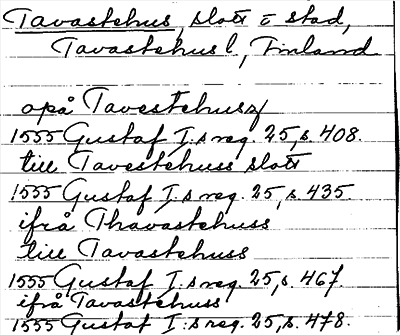 Tavastehus, slott o stad,
Tavastehus l, Finland
opå Tavestehus
1555 Gustaf I:s reg. 25, s. 408.
till Tavestehuss slott
1555 Gustaf I:s reg. 25, s. 435.
ifrå Thavastehuss
till Tavastehuss
1555 Gustaf I:s reg. 25, s. 467.
ifrå Tavastehuss
1555 Gustaf I:s reg. 25, s. 478.